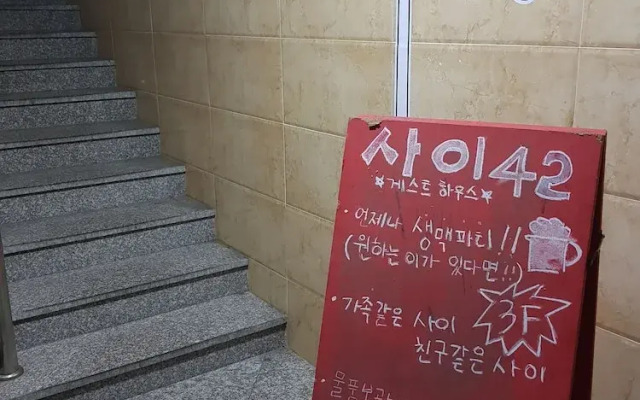 사이42
★게스트하우스★
· 언제나 생맥파티!!
(원하는이가 있다면!!)
· 가족같은 사이
3F
친구같은 사이
· 물품보관